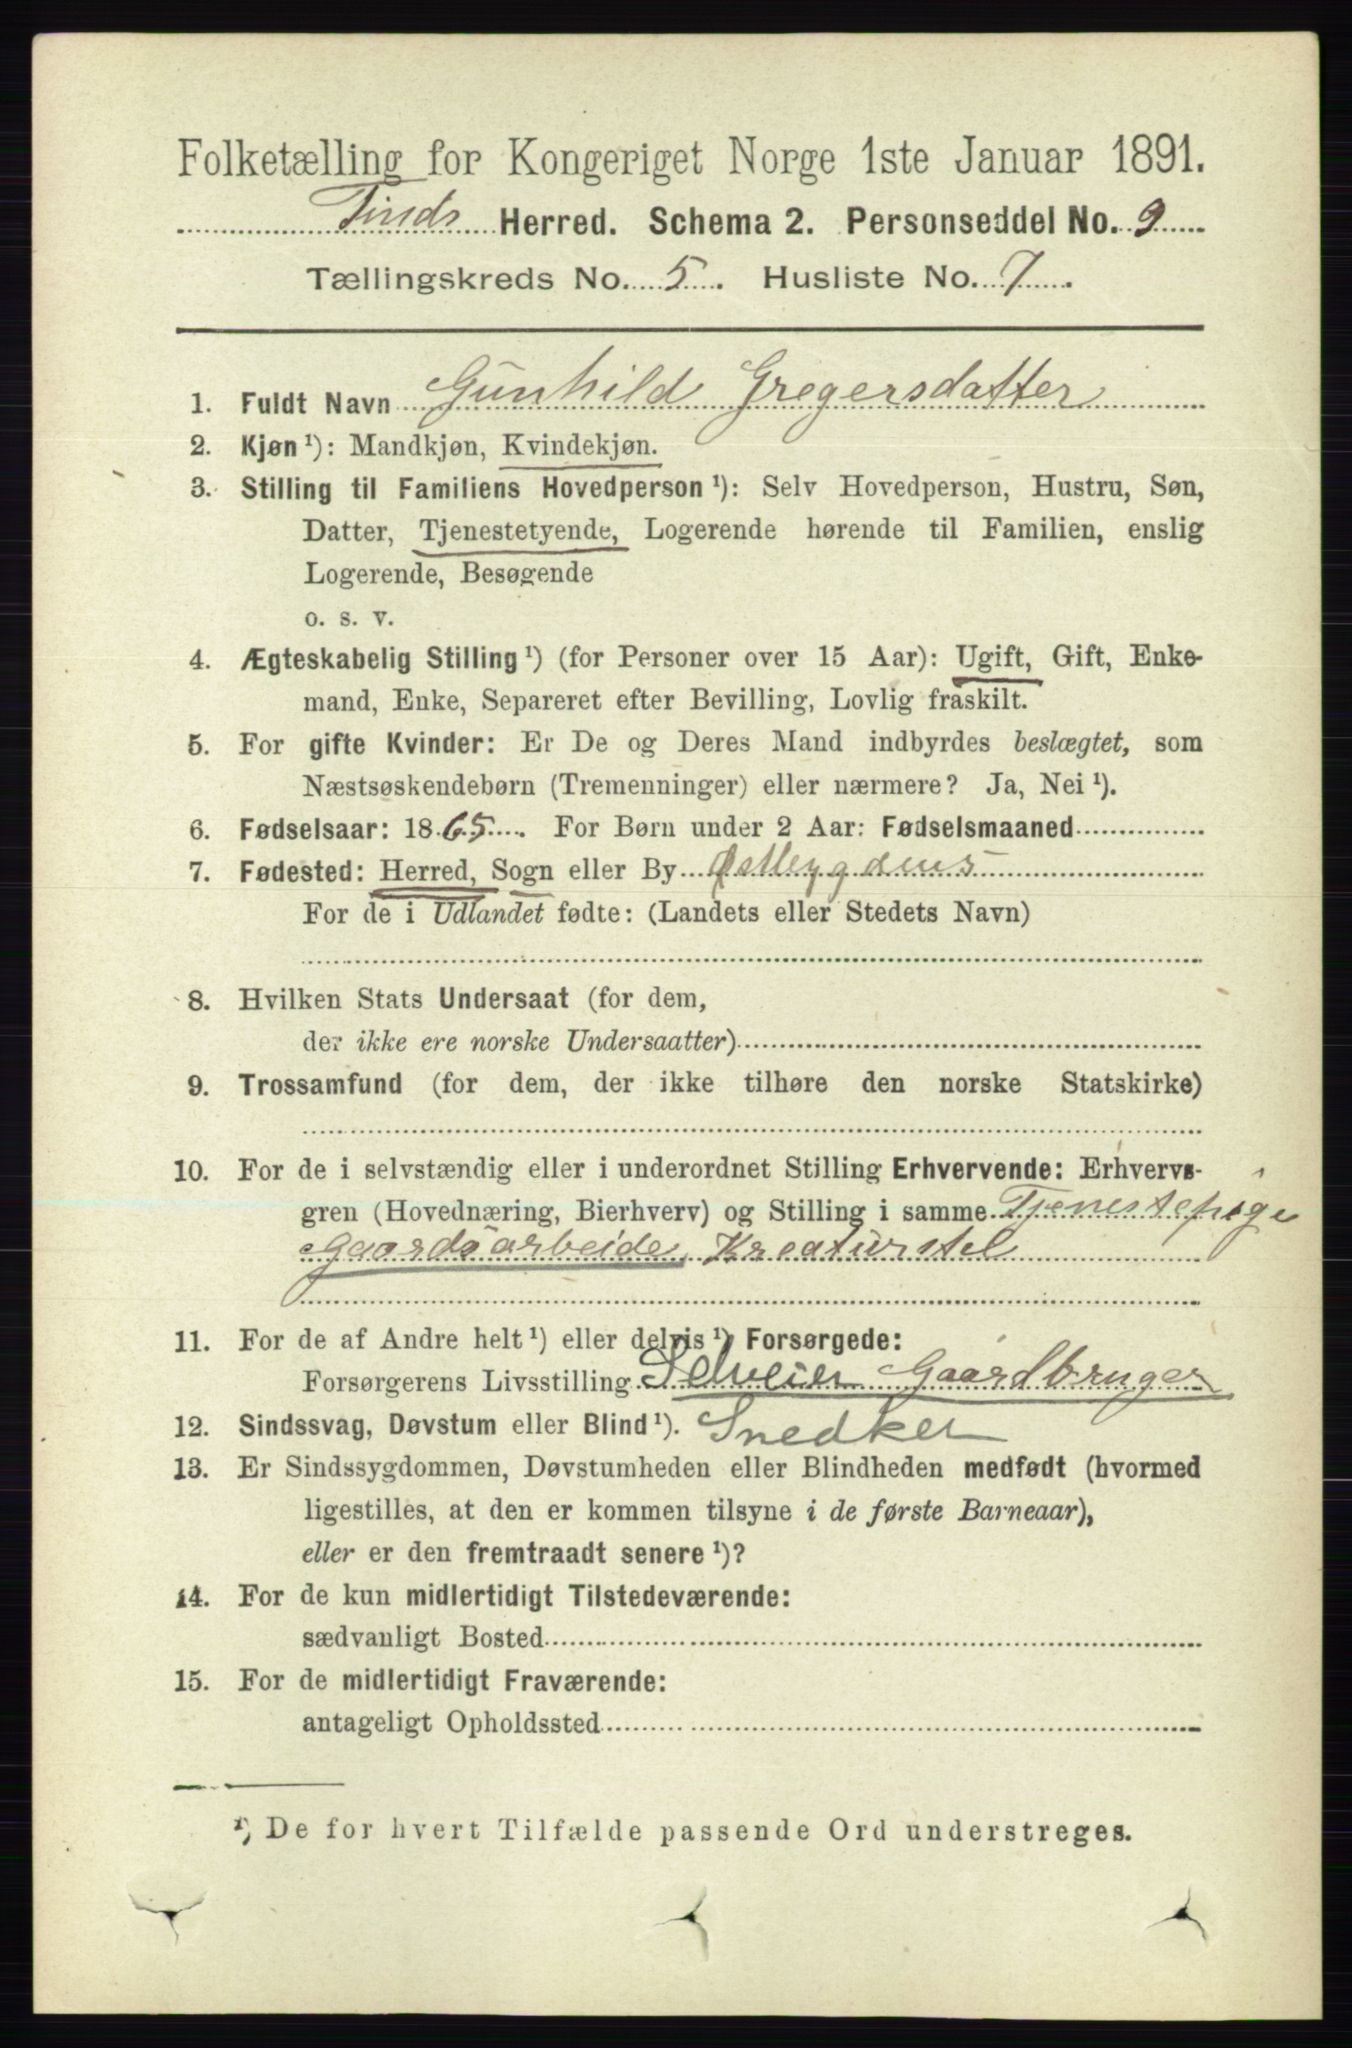 Folketælling for Kongeriget Norge 1ste Januar 1891.
Tinds Herred. Schema 2. Personseddel No. 9
Tællingskreds No. 5. Husliste No. 7.
1. Fuldt Navn Gunhild Gregersdatter
2. Kjøn ¹): Mandkjøn, Kvindekjøn.
3. Stilling til Familiens Hovedperson ¹): Selv Hovedperson, Hustru, Søn,
Datter, Tjenestetyende, Logerende hørende til Familien, enslig
Logerende, Besøgende
o. s. v.
4. Ægteskabelig Stilling ¹) (for Personer over 15 Aar): Ugift, Gift, Enke-
mand, Enke, Separeret efter Bevilling, Lovlig fraskilt.
5. For gifte Kvinder: Er De og Deres Mand indbyrdes beslægtet, som
Næstsøskendebørn (Tremenninger) eller nærmere? Ja, Nei ¹).
6. Fødselsaar: 1865. For Børn under 2 Aar: Fødselsmaaned
7. Fødested: Herred, Sogn eller By Østbygdens
For de i Udlandet fødte: (Landets eller Stedets Navn)
8. Hvilken Stats Undersaat (for dem,
der ikke ere norske Undersaatter)
9. Trossamfund (for dem, der ikke tilhøre den norske Statskirke)
10. For de i selvstændig eller i underordnet Stilling Erhvervende: Erhvervs-
gren (Hovednæring, Bierhverv) og Stilling i samme Tjenestepige
Gaardsarbeide, Kreaturstel
11. For de af Andre helt ¹) eller delvis ¹) Forsørgede:
Forsørgerens Livsstilling Selveier Gaardbruger
12. Sindssvag, Døvstum eller Blind ¹). Snedker
13. Er Sindssygdommen, Døvstumheden eller Blindheden medfødt (hvormed
ligestilles, at den er kommen tilsyne i de første Barneaar),
eller er den fremtraadt senere ¹)?
14. For de kun midlertidigt Tilstedeværende:
sædvanligt Bosted
15. For de midlertidigt Fraværende:
antageligt Opholdssted
¹) De for hvert Tilfælde passende Ord understreges.